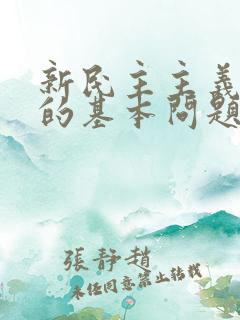 新民主主義
的基本問題
張靜趙
未經同意禁止轉載